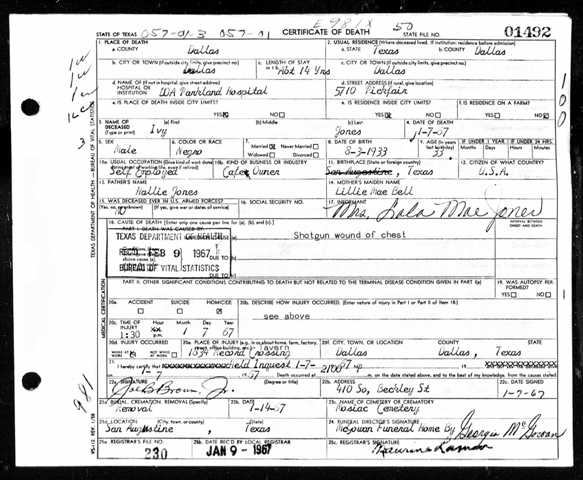 E981X 50
STATE OF TEXAS 057-01-3 057-01 CERTIFICATE OF DEATH STATE FILE NO. 01492
1. PLACE OF DEATH
a. COUNTY Dallas
2. USUAL RESIDENCE (Where deceased lived. If institution: residence before admission)
a. STATE Texas b. COUNTY Dallas
b. CITY OR TOWN (If outside city limits, give precinct no.) Dallas
c. LENGTH OF STAY Abt 14 Yrs
c. CITY OR TOWN (If outside city limits, give precinct no.) Dallas
d. NAME OF (If not in hospital, give street address) HOSPITAL OR INSTITUTION DOA Parkland Hospital
d. STREET ADDRESS (If rural, give location) 5710
e. IS PLACE OF DEATH INSIDE CITY LIMITS? YES NO
e. IS RESIDENCE INSIDE CITY LIMITS? YES NO
f. IS RESIDENCE ON A FARM? YES NO
3. NAME OF DECEASED (Type or print) (a) First Ivy (b) Middle (c) Last Jones
4. DATE OF DEATH 1-7-67
5. SEX Male
6. COLOR OR RACE Negro
7. Married Never Married Widowed Divorced
8. DATE OF BIRTH 8-3-1933
9. AGE 33
IF UNDER 1 YEAR Months Days IF UNDER 24 HRS. Hours Min.
10a. USUAL OCCUPATION (Give kind of work done during most of working life, even if retired) Self Employed
10b. KIND OF BUSINESS OR INDUSTRY Cafe Owner
11. BIRTHPLACE (State or foreign country) San Augustine, Texas
12. CITIZEN OF WHAT COUNTRY? U.S.A.
13. FATHER'S NAME Hallie Jones
14. MOTHER'S MAIDEN NAME Lillie Mae Bell
15. WAS DECEASED EVER IN U.S. ARMED FORCES? (Yes, no, or unknown) (If yes, give war or dates of service) No
16. SOCIAL SECURITY NO.
17. INFORMANT Mrs. Lola Mae Jones
18. CAUSE OF DEATH (Enter only one cause per line for (a), (b), and (c).) INTERVAL BETWEEN ONSET AND DEATH
PART I. DEATH WAS CAUSED BY:
TEXAS DEPARTMENT OF HEALTH Shotgun wound of chest
REC'D FEB 9 1967
BUREAU OF VITAL STATISTICS
PART II. OTHER SIGNIFICANT CONDITIONS CONTRIBUTING TO DEATH BUT NOT RELATED TO THE TERMINAL DISEASE CONDITION GIVEN IN PART I (a)
19. WAS AUTOPSY PERFORMED? YES NO
20a. ACCIDENT SUICIDE HOMICIDE
20b. DESCRIBE HOW INJURY OCCURRED. (Enter nature of injury in Part I or Part II of item 18.)
see above
20c. TIME OF INJURY Hour Month Day Year
1:30 1 7 67
20d. INJURY OCCURRED
20e. PLACE OF INJURY (e.g., in or about home, farm, factory, street, office building, etc.) Tavern
1534 Record Crossing
20f. CITY, TOWN, OR LOCATION Dallas COUNTY Dallas, STATE Texas
Held Inquest 1-7-
1-7 67 Death occurred at
22a. SIGNATURE Joe B. Brown Jr. (Degree or title)
22b. ADDRESS 410 So. Beckley St
22c. DATE SIGNED 1-7-67
23a. BURIAL, CREMATION, REMOVAL (Specify) Removal
23b. DATE 1-14-67
23c. NAME OF CEMETERY OR CREMATORY Mosiac Cemetery
23d. LOCATION San Augustine, Texas
24. FUNERAL DIRECTOR'S SIGNATURE McGowan Funeral Home By Georgia McGowan
25a. REGISTRAR'S FILE NO. 230
25b. DATE REC'D BY LOCAL REGISTRAR JAN 9 - 1967
25c. REGISTRAR'S SIGNATURE
TEXAS DEPARTMENT OF HEALTH - BUREAU OF VITAL STATISTICS
MEDICAL CERTIFICATION
981